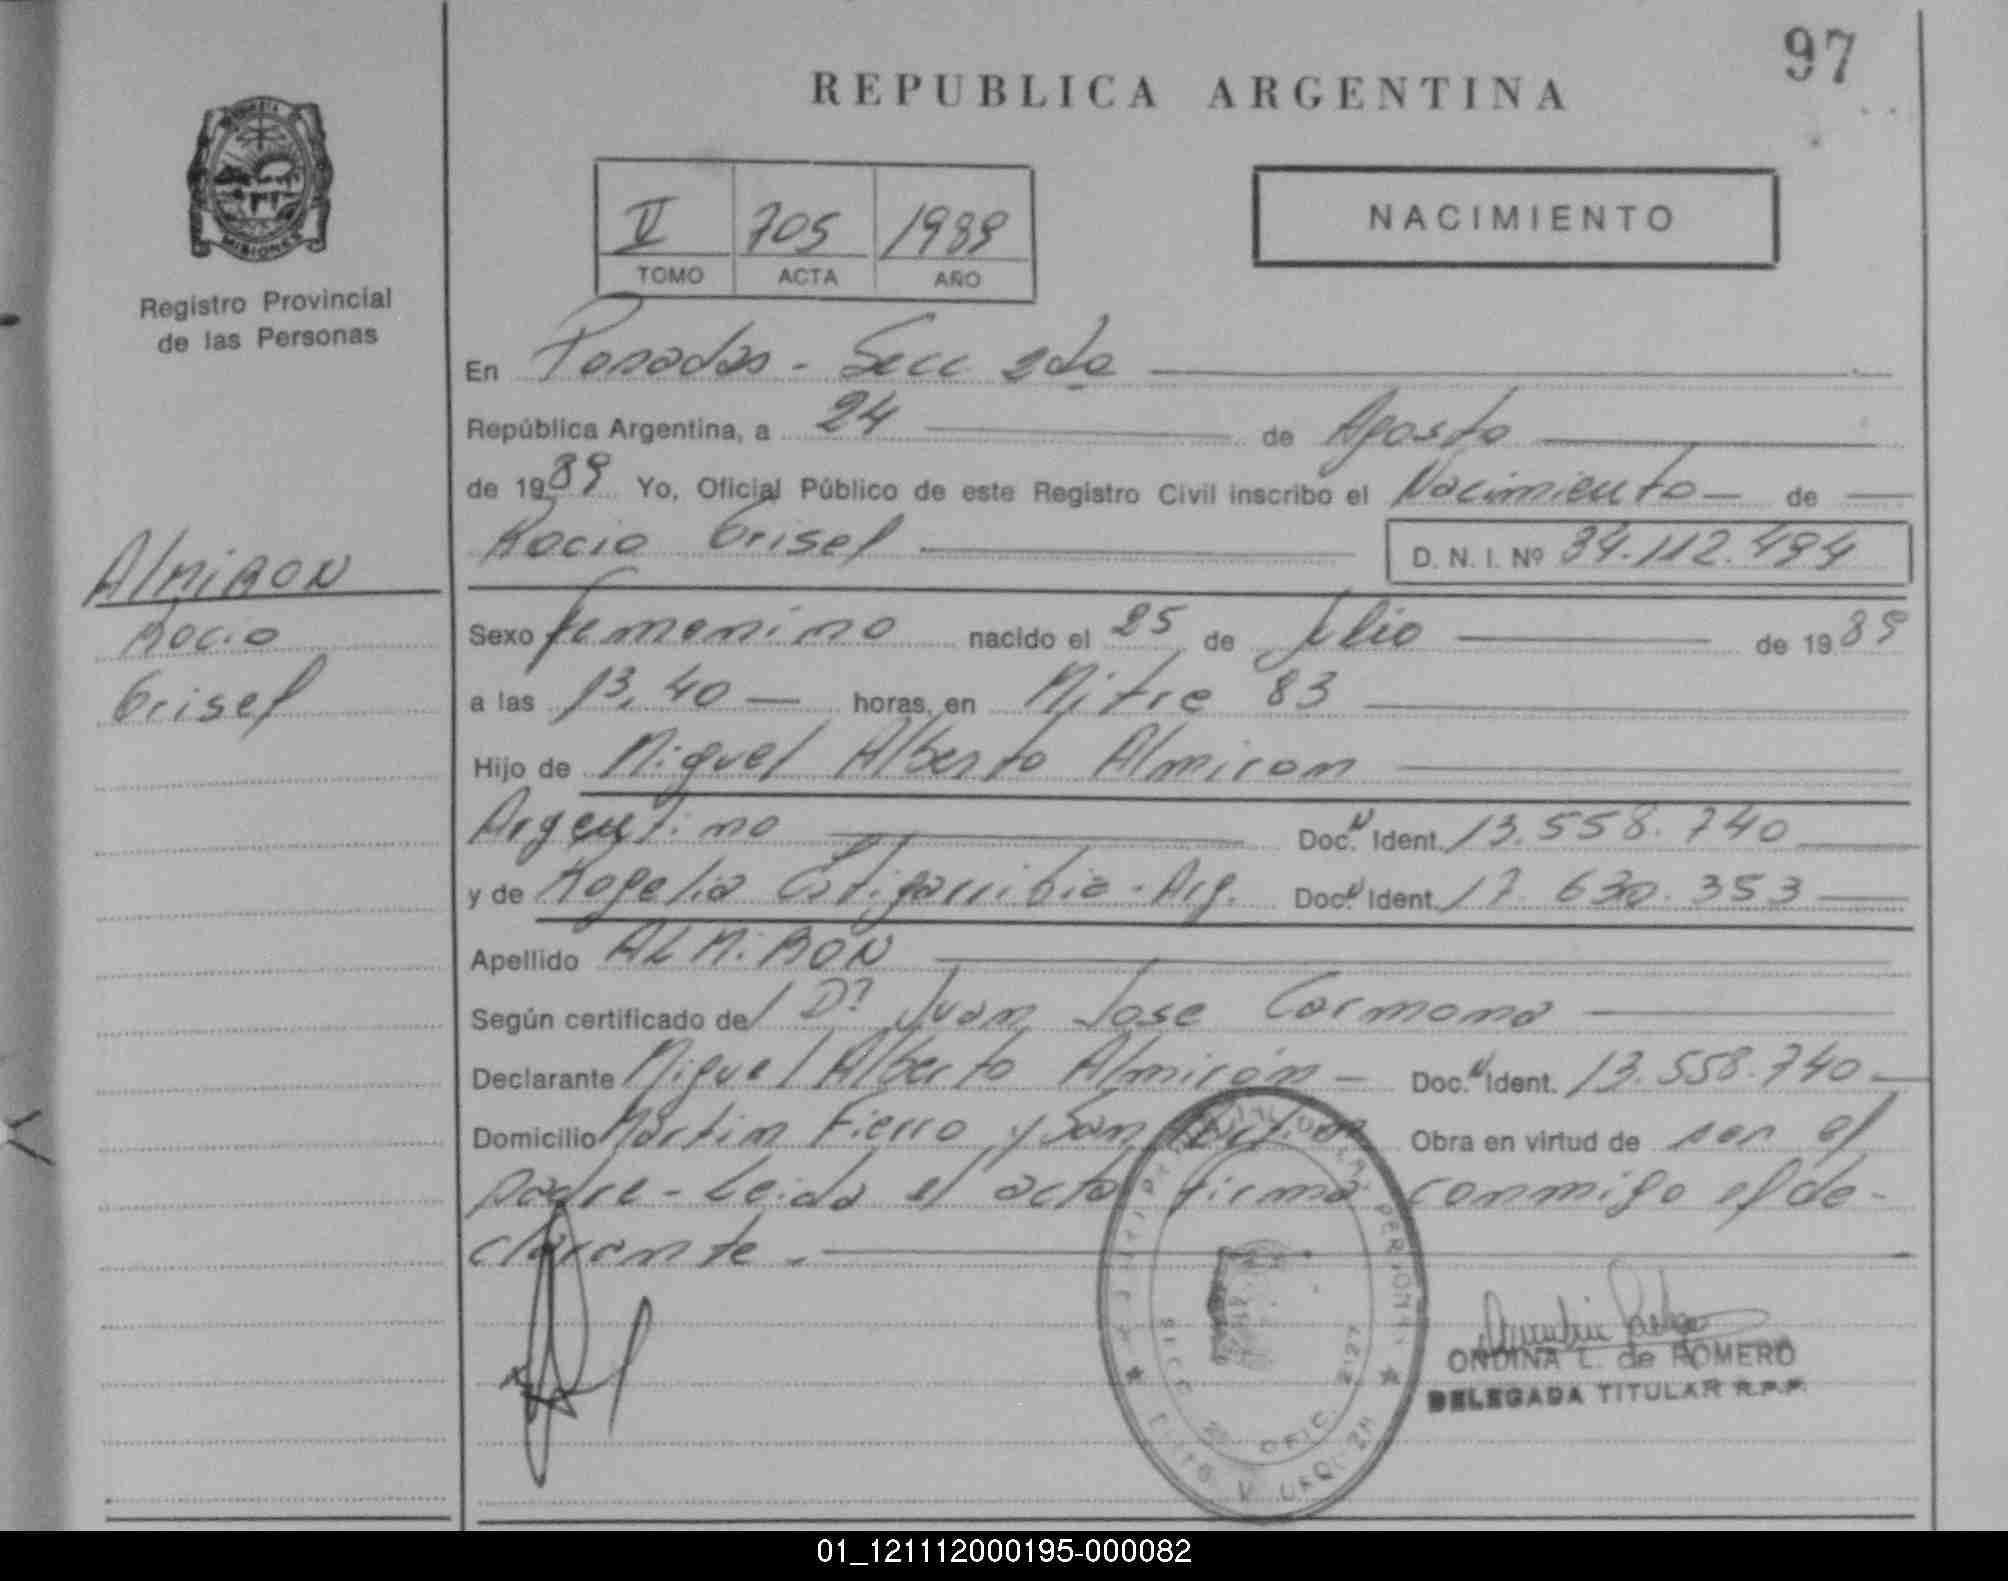 97
REPUBLICA ARGENTINA
MISIONES
Registro Provincial
de las Personas
V 705 1989
TOMO ACTA AÑO
NACIMIENTO
En Posadas - Secc 2da
República Argentina, a 24 de Agosto
de 1989 Yo, Oficial Público de este Registro Civil inscribo el Nacimiento de
Rocio Grisel D. N. I. Nº 34.112.494
AlmiRON
Rocio
Grisel
Sexo femenino nacido el 25 de Julio de 1989
a las 13,40 horas, en Mitre 83
Hijo de Miguel Alberto Almiron
Argentino Doc. Ident. 13.558.740
y de Rogelia Estigarribia - Arg. Doc. Ident. 17.630.353
Apellido ALMiRON
Según certificado del Dr Juan Jose Carmona
Declarante Miguel Alberto Almirón Doc. Ident. 13.558.740
Domicilio Martin Fierro y San Martin Obra en virtud de ser el
padre - Leida el acta firma conmigo el de-
clarante.
ONDINA L. de ROMERO
DELEGADA TITULAR R.P.P.
01_121112000195-000082